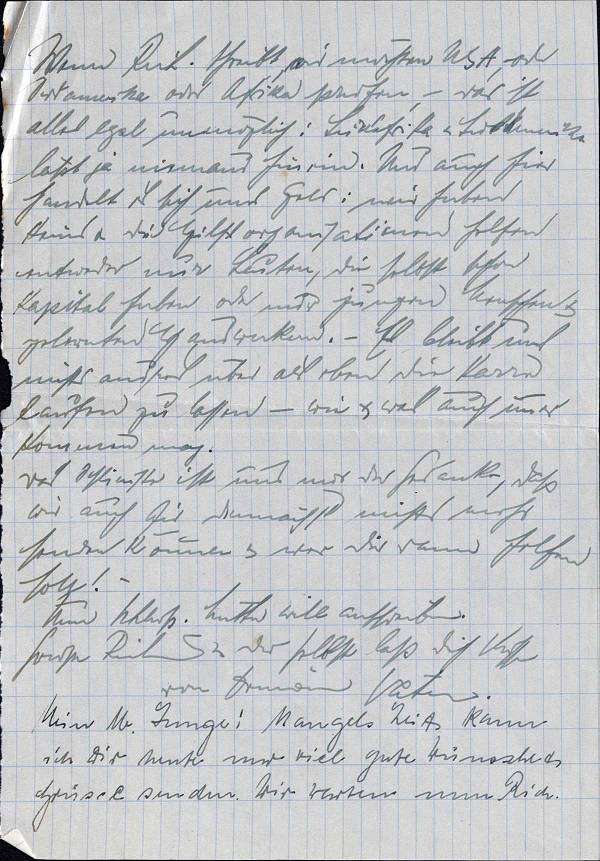 Wenn Rich. schreibt, wir möchten USA, oder
Südamerika oder Afrika prüfen, – das ist
alles egal unmöglich: Südafrika & Südamerika
laßt ja niemand hinein. Und auch hier
handelt es sich um Geld: wir haben
keins & die Hilfsorganisationen helfen
entweder nur Leuten, die selbst schon
Kapital haben oder nur jungen kräftigen
gelernten Handwerkern. – Es bleibt uns
nichts anderes über als eben die Karre
laufen zu lassen – wie & was auch immer
kommen mag.
Das Schlimmste ist uns nur der Gedanke, daß
wir auch Dir demnächst nichts mehr
senden können & wer Dir dann helfen
soll! –
Nun Schluss. Mutter will anschreiben.
Grüße Rich & Du selbst laß Dich küssen
von Deinem Vater.
Mein lb. Junge! Mangels Zeit kann
ich Dir heute nur viel gute Wünsche &
Grüsse senden. Wir warten nun Rich.